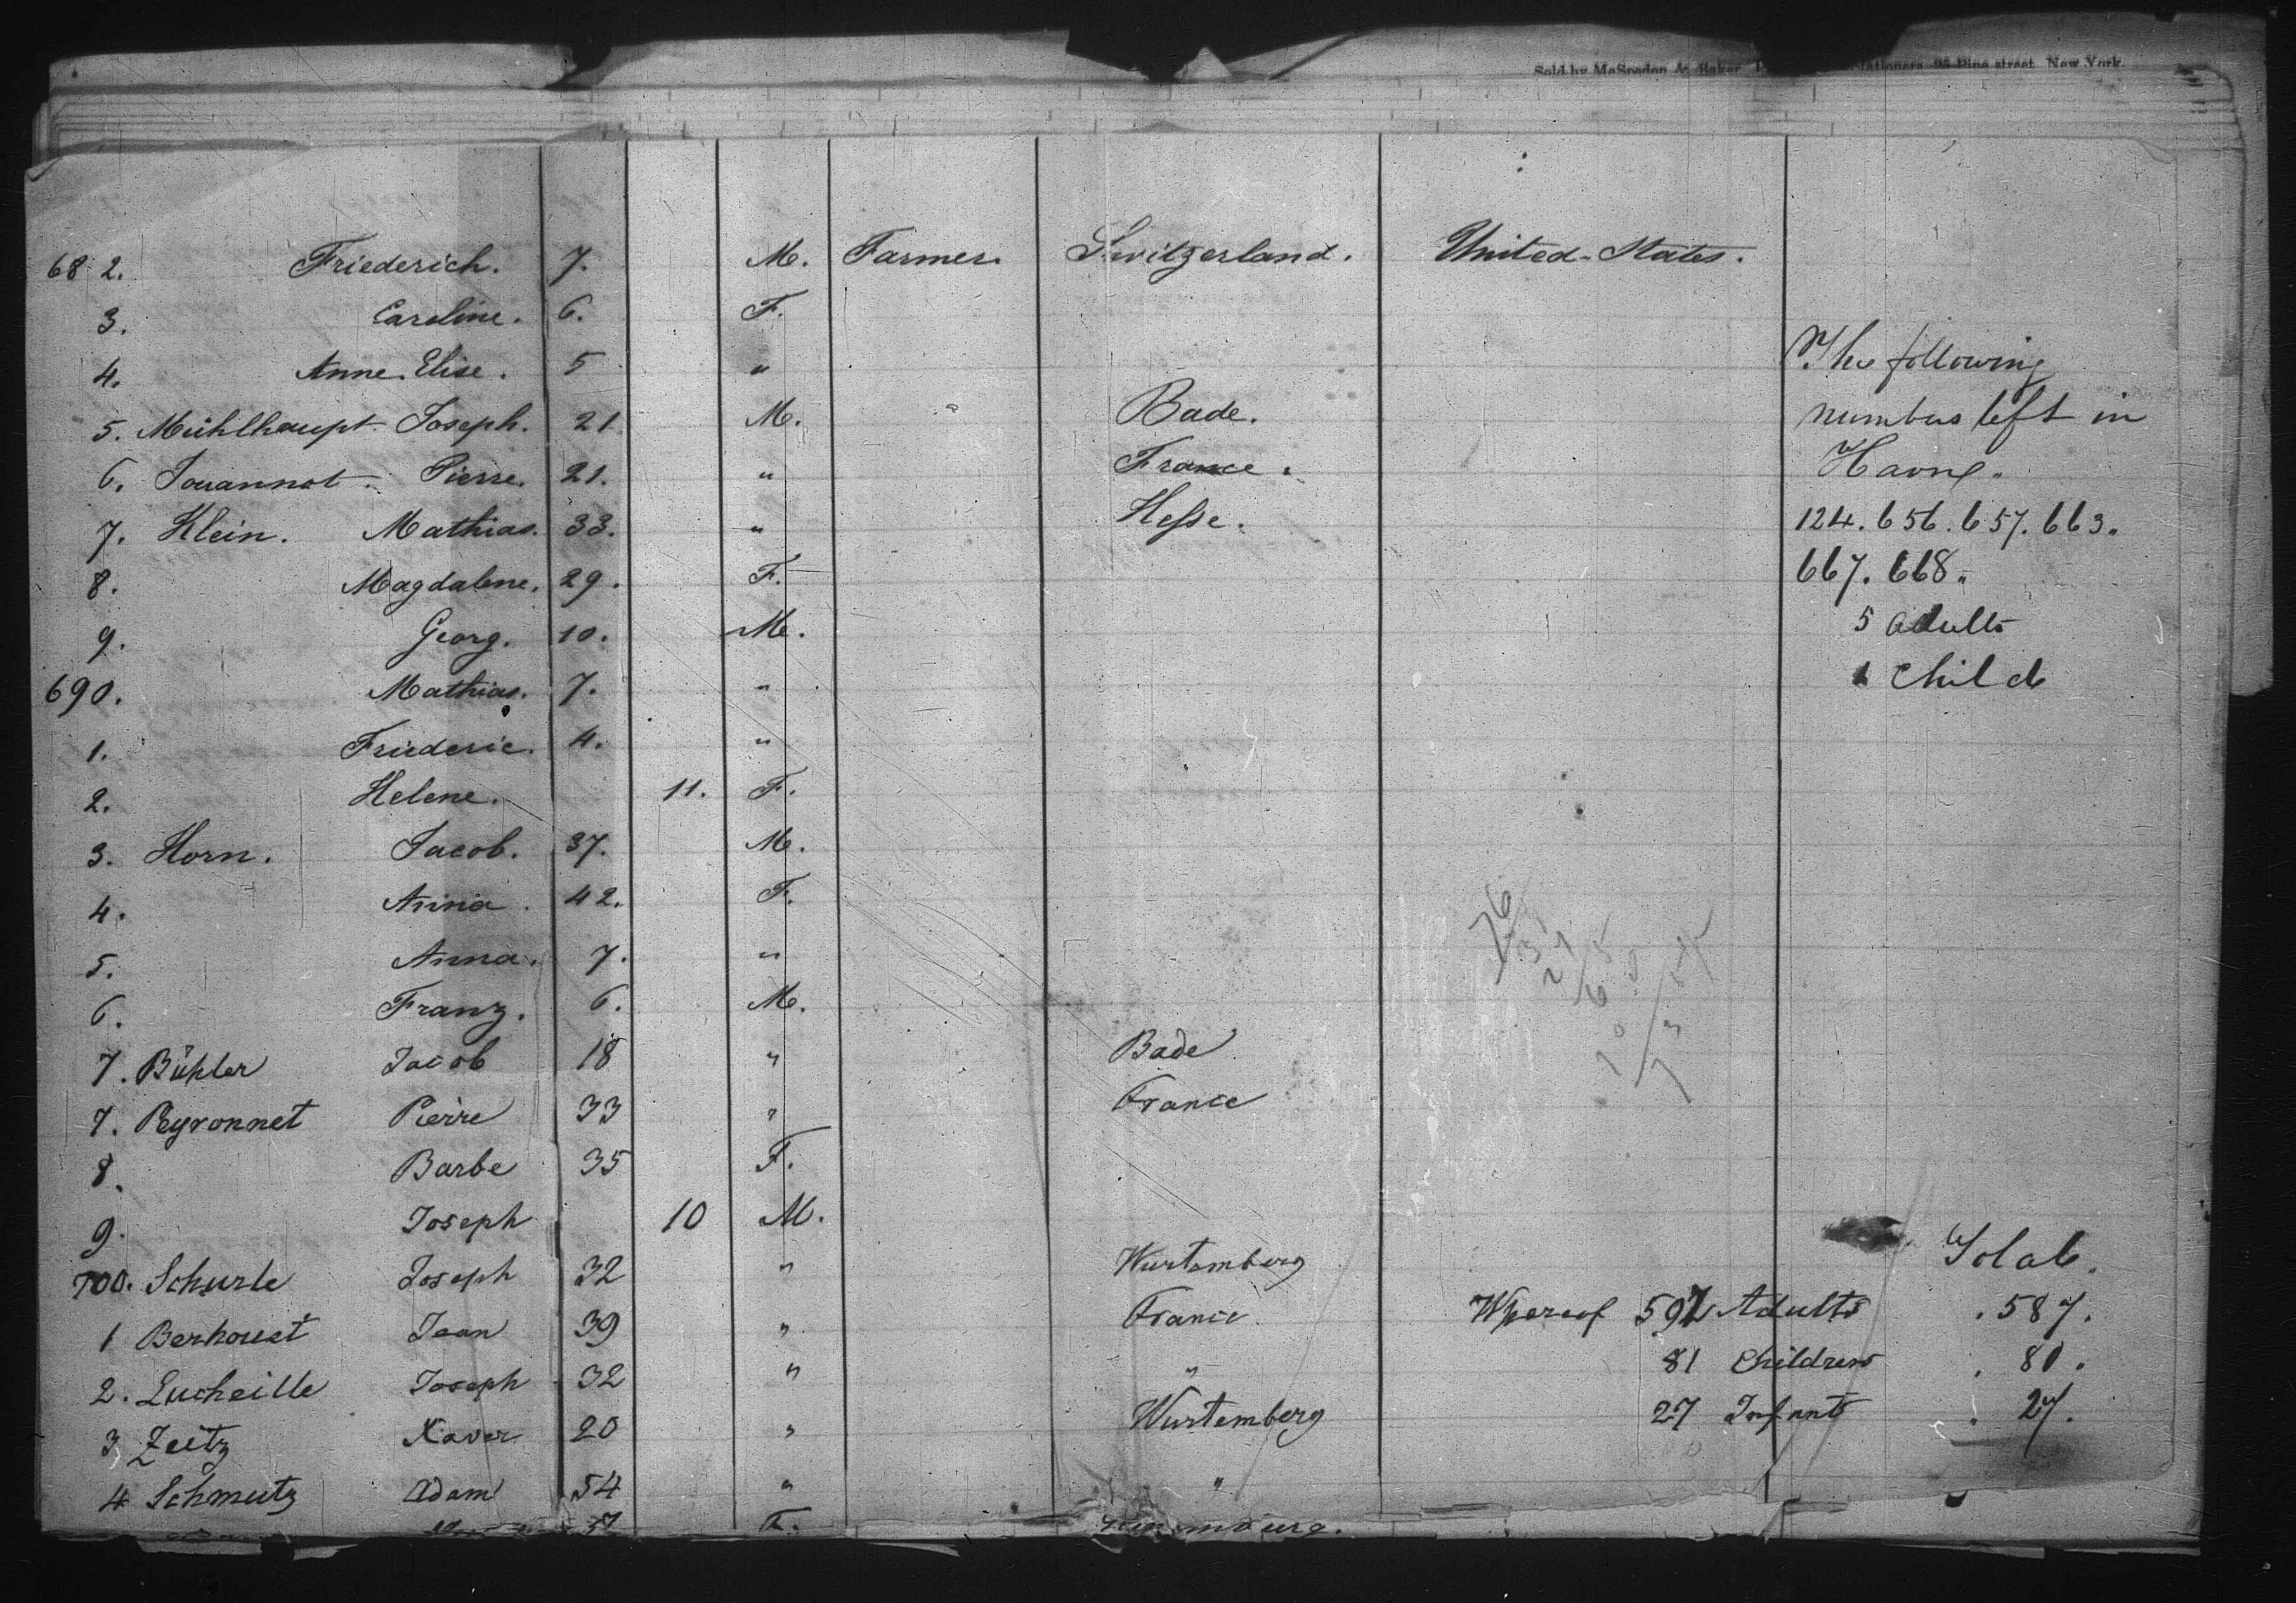 Sold by McSpedon & Baker, Stationers, 25 Pine street, New York.
682. Friederich. 7. M. Farmer. Switzerland. United-States.
3. Caroline. 6. F.
4. Anne. Elise. 5 " The following
5. Mühlhaupt Joseph. 21 M. Bade. numbers left in
6. Jouannot. Pierre. 21. " France. Havre.
7. Klein. Mathias. 33. " Hesse. 124. 656. 657. 663.
8. Magdalene. 29. F. 667. 668.
9. Georg. 10. M. 5 Adults
690. Mathias. 7. " 1 Child
1. Friederic. 4. "
2. Helene. 11. F.
3. Horn. Jacob. 37. M.
4. Anna. 42. F.
5. Anna. 7. "
6. Franz. 6. M.
7. Bühler Jacob 18 " Bade
7. Peyronnet Pierre 33 " France
8. Barbe 35 F.
9. Joseph 10 M.
700. Schurle Joseph 32 " Wurtemberg Total.
1 Berhouet Jean 39 " France. Whereof Adults . 587.
2. Lucheille Joseph 32 " " 81 Children . 80.
3 Zeitz Xaver 20 " Wurtemberg 27 Infants . 27.
4 Schmutz Adam 54 " "
F.